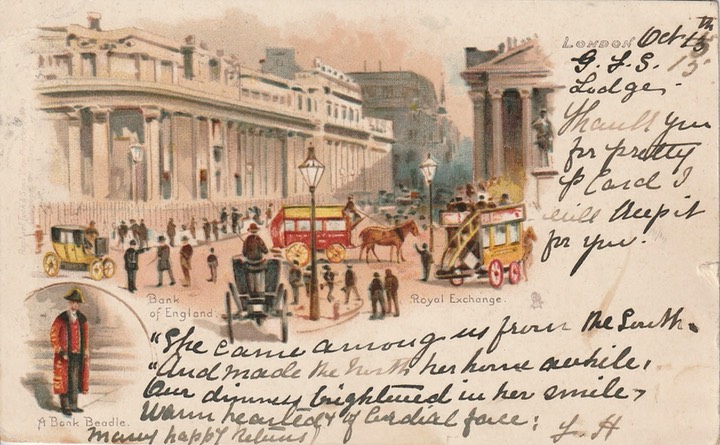 LONDON Oct 15th
15
G. L. S.
Lodge.
Thank you
for pretty
P Card I
will keep it
for you.
Bank
of England.
Royal Exchange.
A Bank Beadle.
"She came among us from the South.
"And made the North her home awhile,
Our dimness brightened in her smile,
Warm hearted & of cordial face;
Many happy Returns
L. H